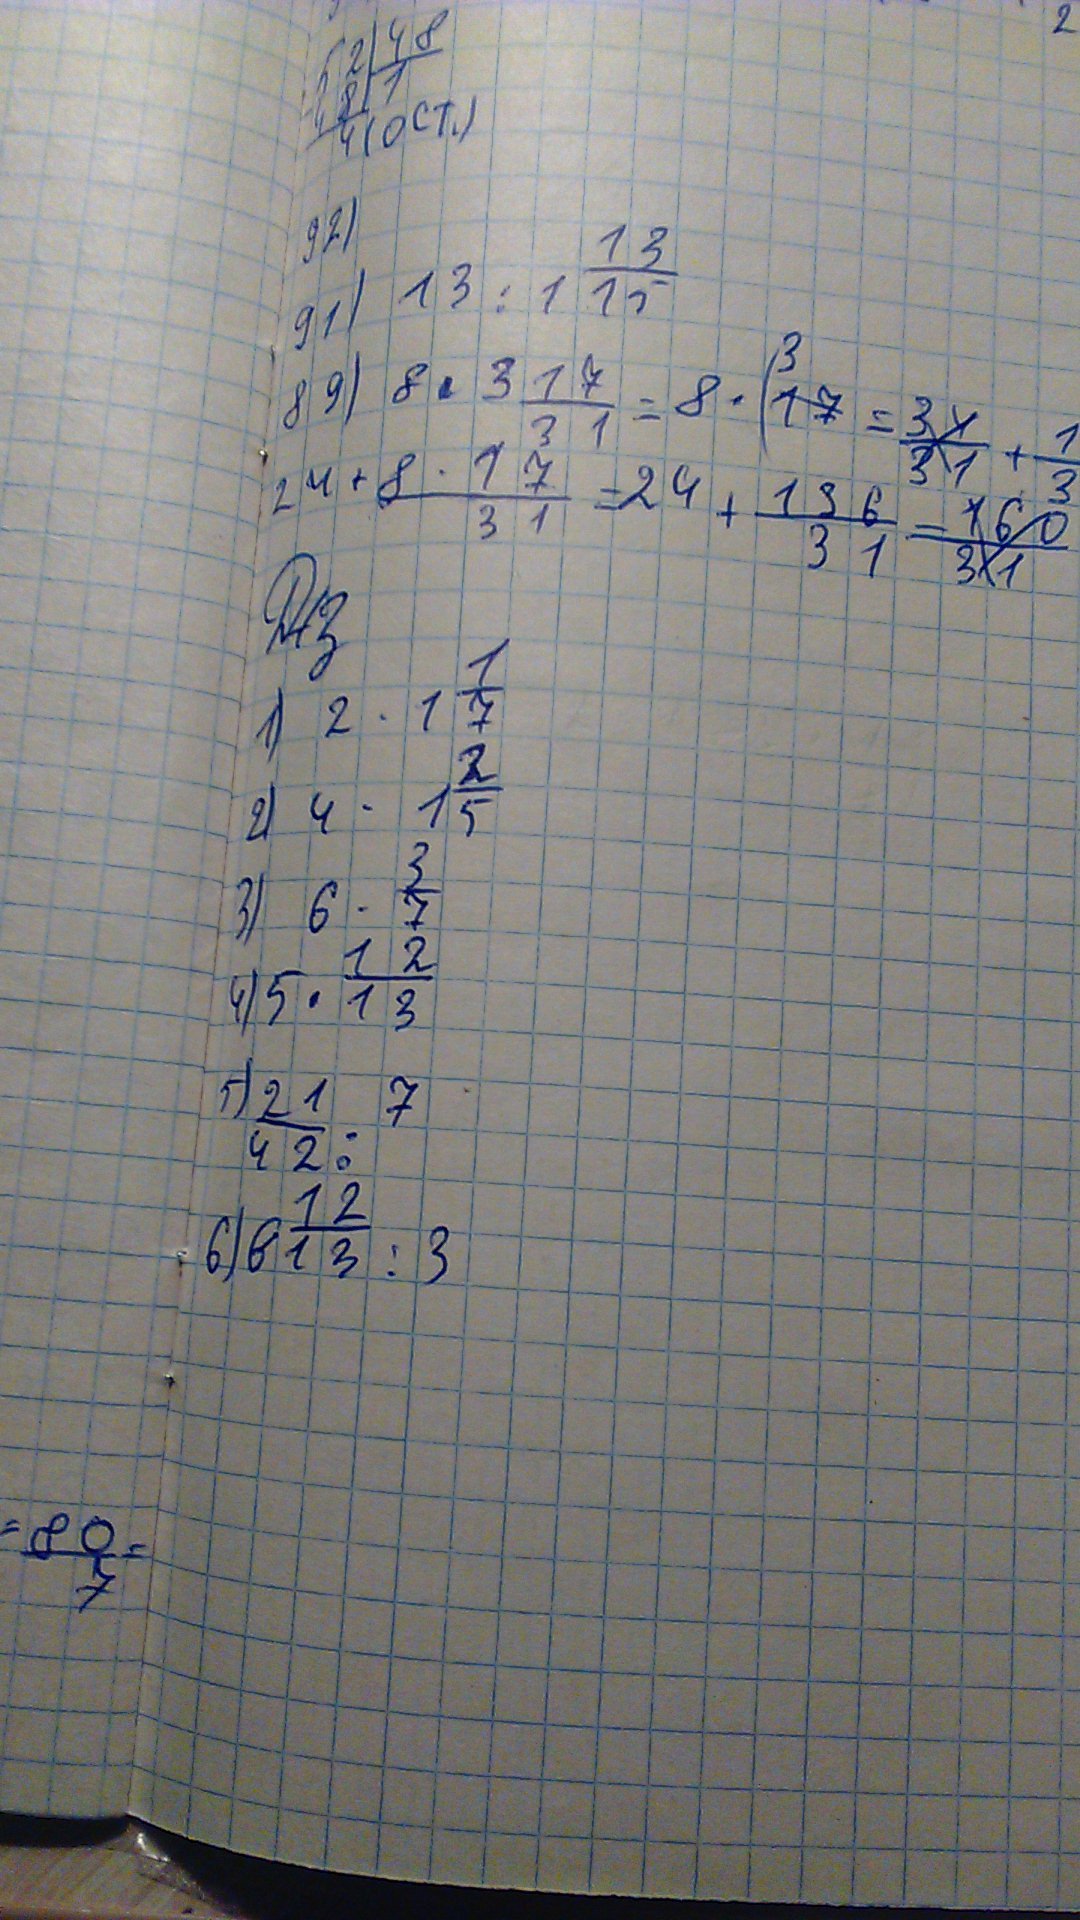 2
52|48
48|1
4(ОСТ.)
92)
91) 13 : 1 13/15
89) 8 · 3 17/31 = 8 · (3 17 = 31/31 + 1/3
24 + 8 · 17/31 = 24 + 136/31 = 160/31
Д/З
1) 2 · 1 1/7
2) 4 · 1 2/5
3) 6 · 3/7
4) 5 · 12/13
5) 21/42 : 7
6) 6 12/13 : 3
= 80/7 =